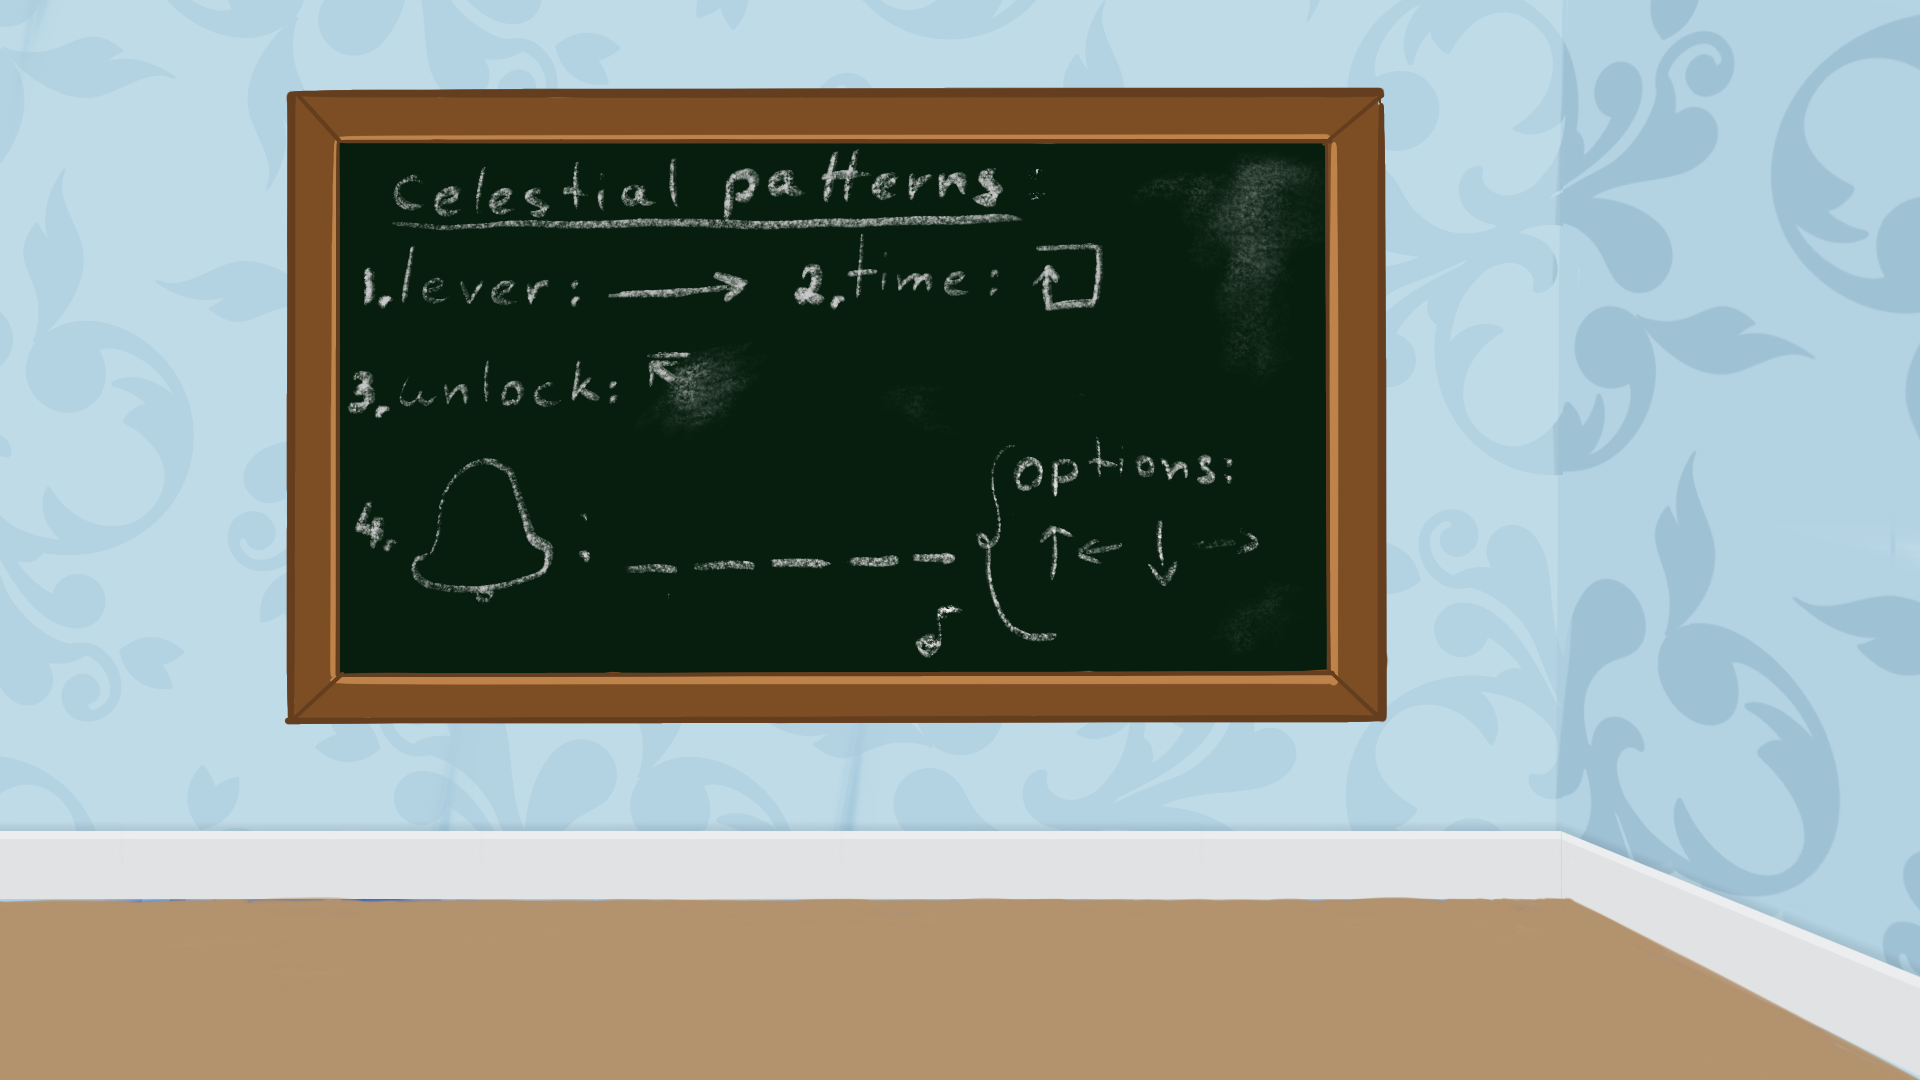 celestial patterns:
1. lever: → 2. time:
3. unlock:
4. : _ _ _ _ _
options:
↑ ← ↓ →